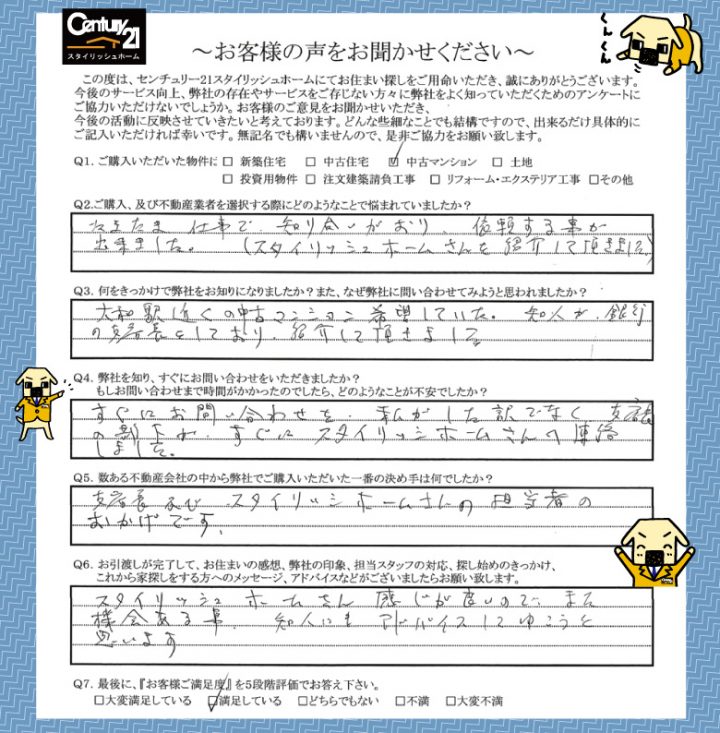 Century 21
スタイリッシュホーム
～お客様の声をお聞かせください～
くんくん
この度は、センチュリー21スタイリッシュホームにてお住まい探しをご用命いただき、誠にありがとうございます。
今後のサービス向上、弊社の存在やサービスをご存じない方々に弊社をよく知っていただくためのアンケートに
ご協力いただけないでしょうか。お客様のご意見をお聞かせいただき、
今後の活動に反映させていきたいと考えております。どんな些細なことでも結構ですので、出来るだけ具体的に
ご記入いただければ幸いです。無記名でも構いませんので、是非ご協力をお願い致します。
Q1. ご購入いただいた物件に □ 新築住宅 □ 中古住宅 ☑ 中古マンション □ 土地
□ 投資用物件 □ 注文建築請負工事 □ リフォーム・エクステリア工事 □その他
Q2.ご購入、及び不動産業者を選択する際にどのようなことで悩まれていましたか?
たまたま 仕事で、知り合いがおり、依頼する事が
出来ました。 (スタイリッシュホームさんを紹介して頂きました)
Q3. 何をきっかけで弊社をお知りになりましたか?また、なぜ弊社に問い合わせてみようと思われましたか?
大和駅近くの中古マンション希望していた。知人が、銀行
の支店長をしており、紹介して頂きました。
Q4. 弊社を知り、すぐにお問い合わせをいただきましたか?
もしお問い合わせまで時間がかかったのでしたら、どのようなことが不安でしたか?
すぐにお問い合わせを、私がした訳でなく 支店長
の部下が、すぐに スタイリッシュホームさんへ連絡
しました。
Q5. 数ある不動産会社の中から弊社でご購入いただいた一番の決め手は何でしたか?
支店長及び、スタイリッシュホームさんの担当者の
おかげです。
Q6. お引渡しが完了して、お住まいの感想、弊社の印象、担当スタッフの対応、探し始めのきっかけ、
これから家探しをする方へのメッセージ、アドバイスなどがございましたらお願い致します。
スタイリッシュ ホームさん 感じが良いので、また
機会ある事、知人にも アドバイスしてゆこうと
思います
Q7. 最後に、『お客様ご満足度』を5段階評価でお答え下さい。
□大変満足している ☑満足している □どちらでもない □不満 □大変不満